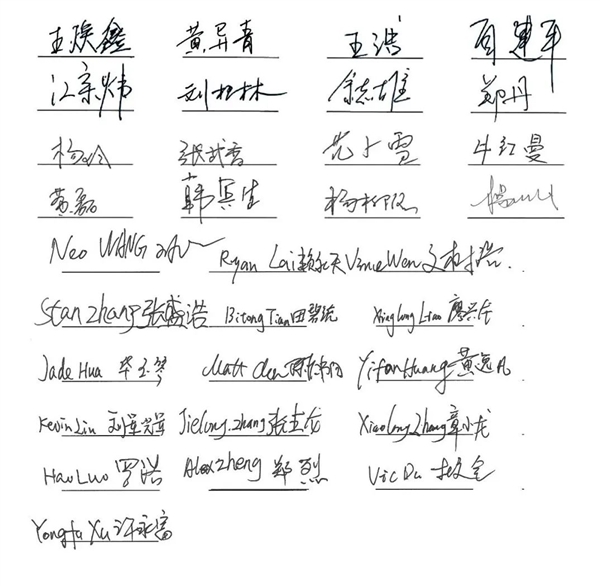 王焕鑫 黄异青 王鸿 肖建平
江宗炜 刘柏林 余志雄 郑丹
杨玲 张武香 范小雪 牛红曼
黄磊 韩冥生 杨柳
Neo WANG Ryan Lai 赖永天 Vinnie Wen 文
Stan Zhang 张盛浩 Bitong Tian 田碧 Xinglong Liao 廖兴龙
Jade Hua 华玉琴 Matt Chen 陈 Yifan Huang 黄逸凡
Kevin Liu 刘军 Jielong Zhang 张杰龙 Xiaolong Zhang 章小龙
Hao Luo 罗浩 Alex Zheng 郑烈 Vic Du
Yongfu Xu 许永富